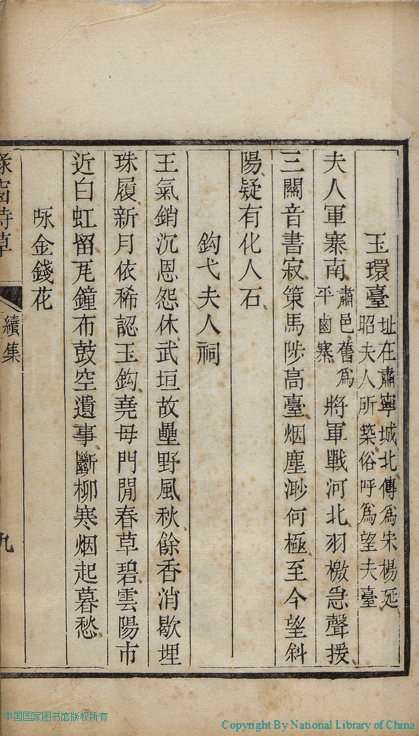 玉環臺址在肅寧城北傳爲宋楊延
昭夫人所築俗呼爲望夫臺
夫人軍寨南肅邑舊爲平鹵寨將軍戰河北羽檄急聲援
三關音書寂策馬陟高臺烟塵渺何極至今望斜
陽疑有化人石
鈎弋夫人祠
王氣銷沉恩怨休武垣故壘野風秋餘香消歇埋
珠履新月依稀認玉鈎堯母門閒春草碧雲陽市
近白虹留瓦鐘布鼓空遺事斷柳寒烟起暮愁
咏金錢花
詩草
續集
九
中国国家图书馆版权所有
Copyright By National Library of China